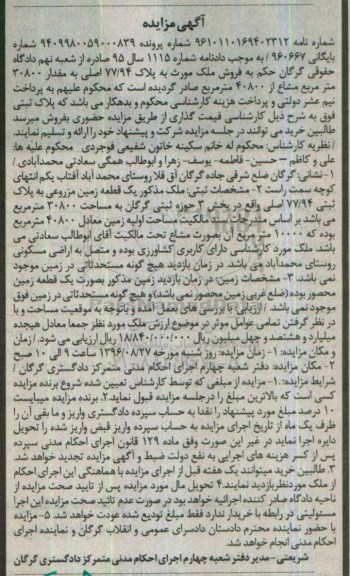 آگهی مزایده
شماره نامه ۹۶۱۰۱۱۰۱۶۹۴۰۲۳۱۲ شماره پرونده ۹۴۰۹۹۸۰۰۵۹۰۰۰۸۳۹ شماره
بایگانی ۹۶۰۶۶۷ / به موجب دادنامه شماره ۱۱۱۵ سال ۹۵ صادره از شعبه نهم دادگاه
حقوقی گرگان حکم به فروش ملک مورث به پلاک ۷۷/۹۴ اصلی به مقدار ۳۰۸۰۰
متر مربع مشاع از ۴۰۸۰۰ مترمربع صادر گردیده است که محکوم علیهم به پرداخت
نیم عشر دولتی و پرداخت هزینه کارشناسی محکوم و بدهکار می باشد که پلاک ثبتی
فوق به شرح ذیل کارشناسی قیمت گذاری از طریق مزایده حضوری بفروش میرسد
طالبین خرید می توانند در جلسه مزایده شرکت و پیشنهاد خود را ارائه و تسلیم نمایند.
/ نظریه کارشناس: محکوم له خانم سکینه خاتون شفیعی فوجردی محکوم علیه ها:
علی و کاظم – حسین – فاطمه – یوسف – زهرا و ابوطالب همگی سعادتی محمدآبادی /
۱- نشانی: گرگان ضلع شرقی جاده گرگان آق قلا روستای محمد آباد آفتاب یکم انتهای
کوچه سمت راست ۲- مشخصات ثبتی: ملک مذکور یک قطعه زمین مزروعی به پلاک
ثبتی ۷۷/۹۴ اصلی واقع در بخش ۳ حوزه ثبتی گرگان به مساحت ۳۰۸۰۰ مترمربع
می باشد بر اساس مندرجات سند مالکیت مساحت اولیه زمین معادل ۴۰۸۰۰ مترمربع
بوده که ۱۰۰۰۰ متر مربع آن بصورت مشاع تحت مالکیت آقای ابوطالب سعادتی می
باشد. ملک مورد کارشناسی دارای کاربری کشاورزی بوده و متصل به اراضی مسکونی
روستای محمدآباد می باشد. در زمان بازدید هیچ گونه مستحدثاتی در زمین موجود
نمی باشد. ۳- مشخصات زمین: در زمان بازدید زمین مذکور بصورت یک قطعه زمین
محصور بوده (ضلع غربی زمین محصور نمی باشد) و هیچ گونه مستحدثاتی در زمین فوق
موجود نمی باشد. / ارزیابی: با بررسی های بعمل آمده و با توجه به موقعیت مساحت و با
در نظر گرفتن تمامی عوامل موثر در موضوع ارزش ملک مورد نظر جمعا معادل هیجده
میلیارد و هشتصد و چهل میلیون ریال ۱۸۸۴۰/۰۰۰/۰۰۰ ریال ارزیابی می شود. / زمان
و مکان مزایده: ۱- زمان مزایده: روز شنبه مورخه ۱۳۹۶/۰۸/۲۷ ساعت ۹ الی ۱۰ صبح
۲- مکان مزایده: دفتر شعبه چهارم اجرای احکام مدنی متمرکز دادگستری گرگان /
شرایط مزایده: ۱- مزایده از مبلغی که توسط کارشناس تعیین شده شروع برنده مزایده
کسی است که بالاترین مبلغ را درجلسه مزایده قبول نماید.۲. برنده مزایده میبایست
۱۰ درصد مبلغ مورد پیشنهاد را نقدا به حساب سپرده دادگستری واریز و ما بقی آن را
ظرف یک ماه از تاریخ اجرای مزایده به حساب سپرده واریز قبض واریز شده را تحویل
دایره اجرا نماید در غیر این صورت وفق ماده ۱۲۹ قانون اجرای احکام مدنی سپرده
پس از کسر هزینه های اجرایی به نفع دولت ضبط و آگهی مزایده تجدید خواهد شد.
۳. طالبین خرید میتوانند یک هفته قبل از اجرای مزایده با هماهنگی این اجرای احکام
از ملک موردنظر بازدید نمایند.۴ تحویل مال مورد مزایده پس از تایید صحت مزایده از
ناحیه دادگاه صادر کننده اجرائیه خواهد بود در صورت عدم تائید صحت مزایده این اجرا
مسئولیتی در رابطه با خریدار ندارد فقط مبلغ تودیع شده عودت خواهد شد. ۵- مزایده
با حضور نماینده محترم دادستان دادسرای عمومی و انقلاب گرگان و نماینده اجرای
احکام مدنی انجام خواهد شد.
شریعتی- مدیر دفتر شعبه چهارم اجرای احکام مدنی متمرکز دادگستری گرگان